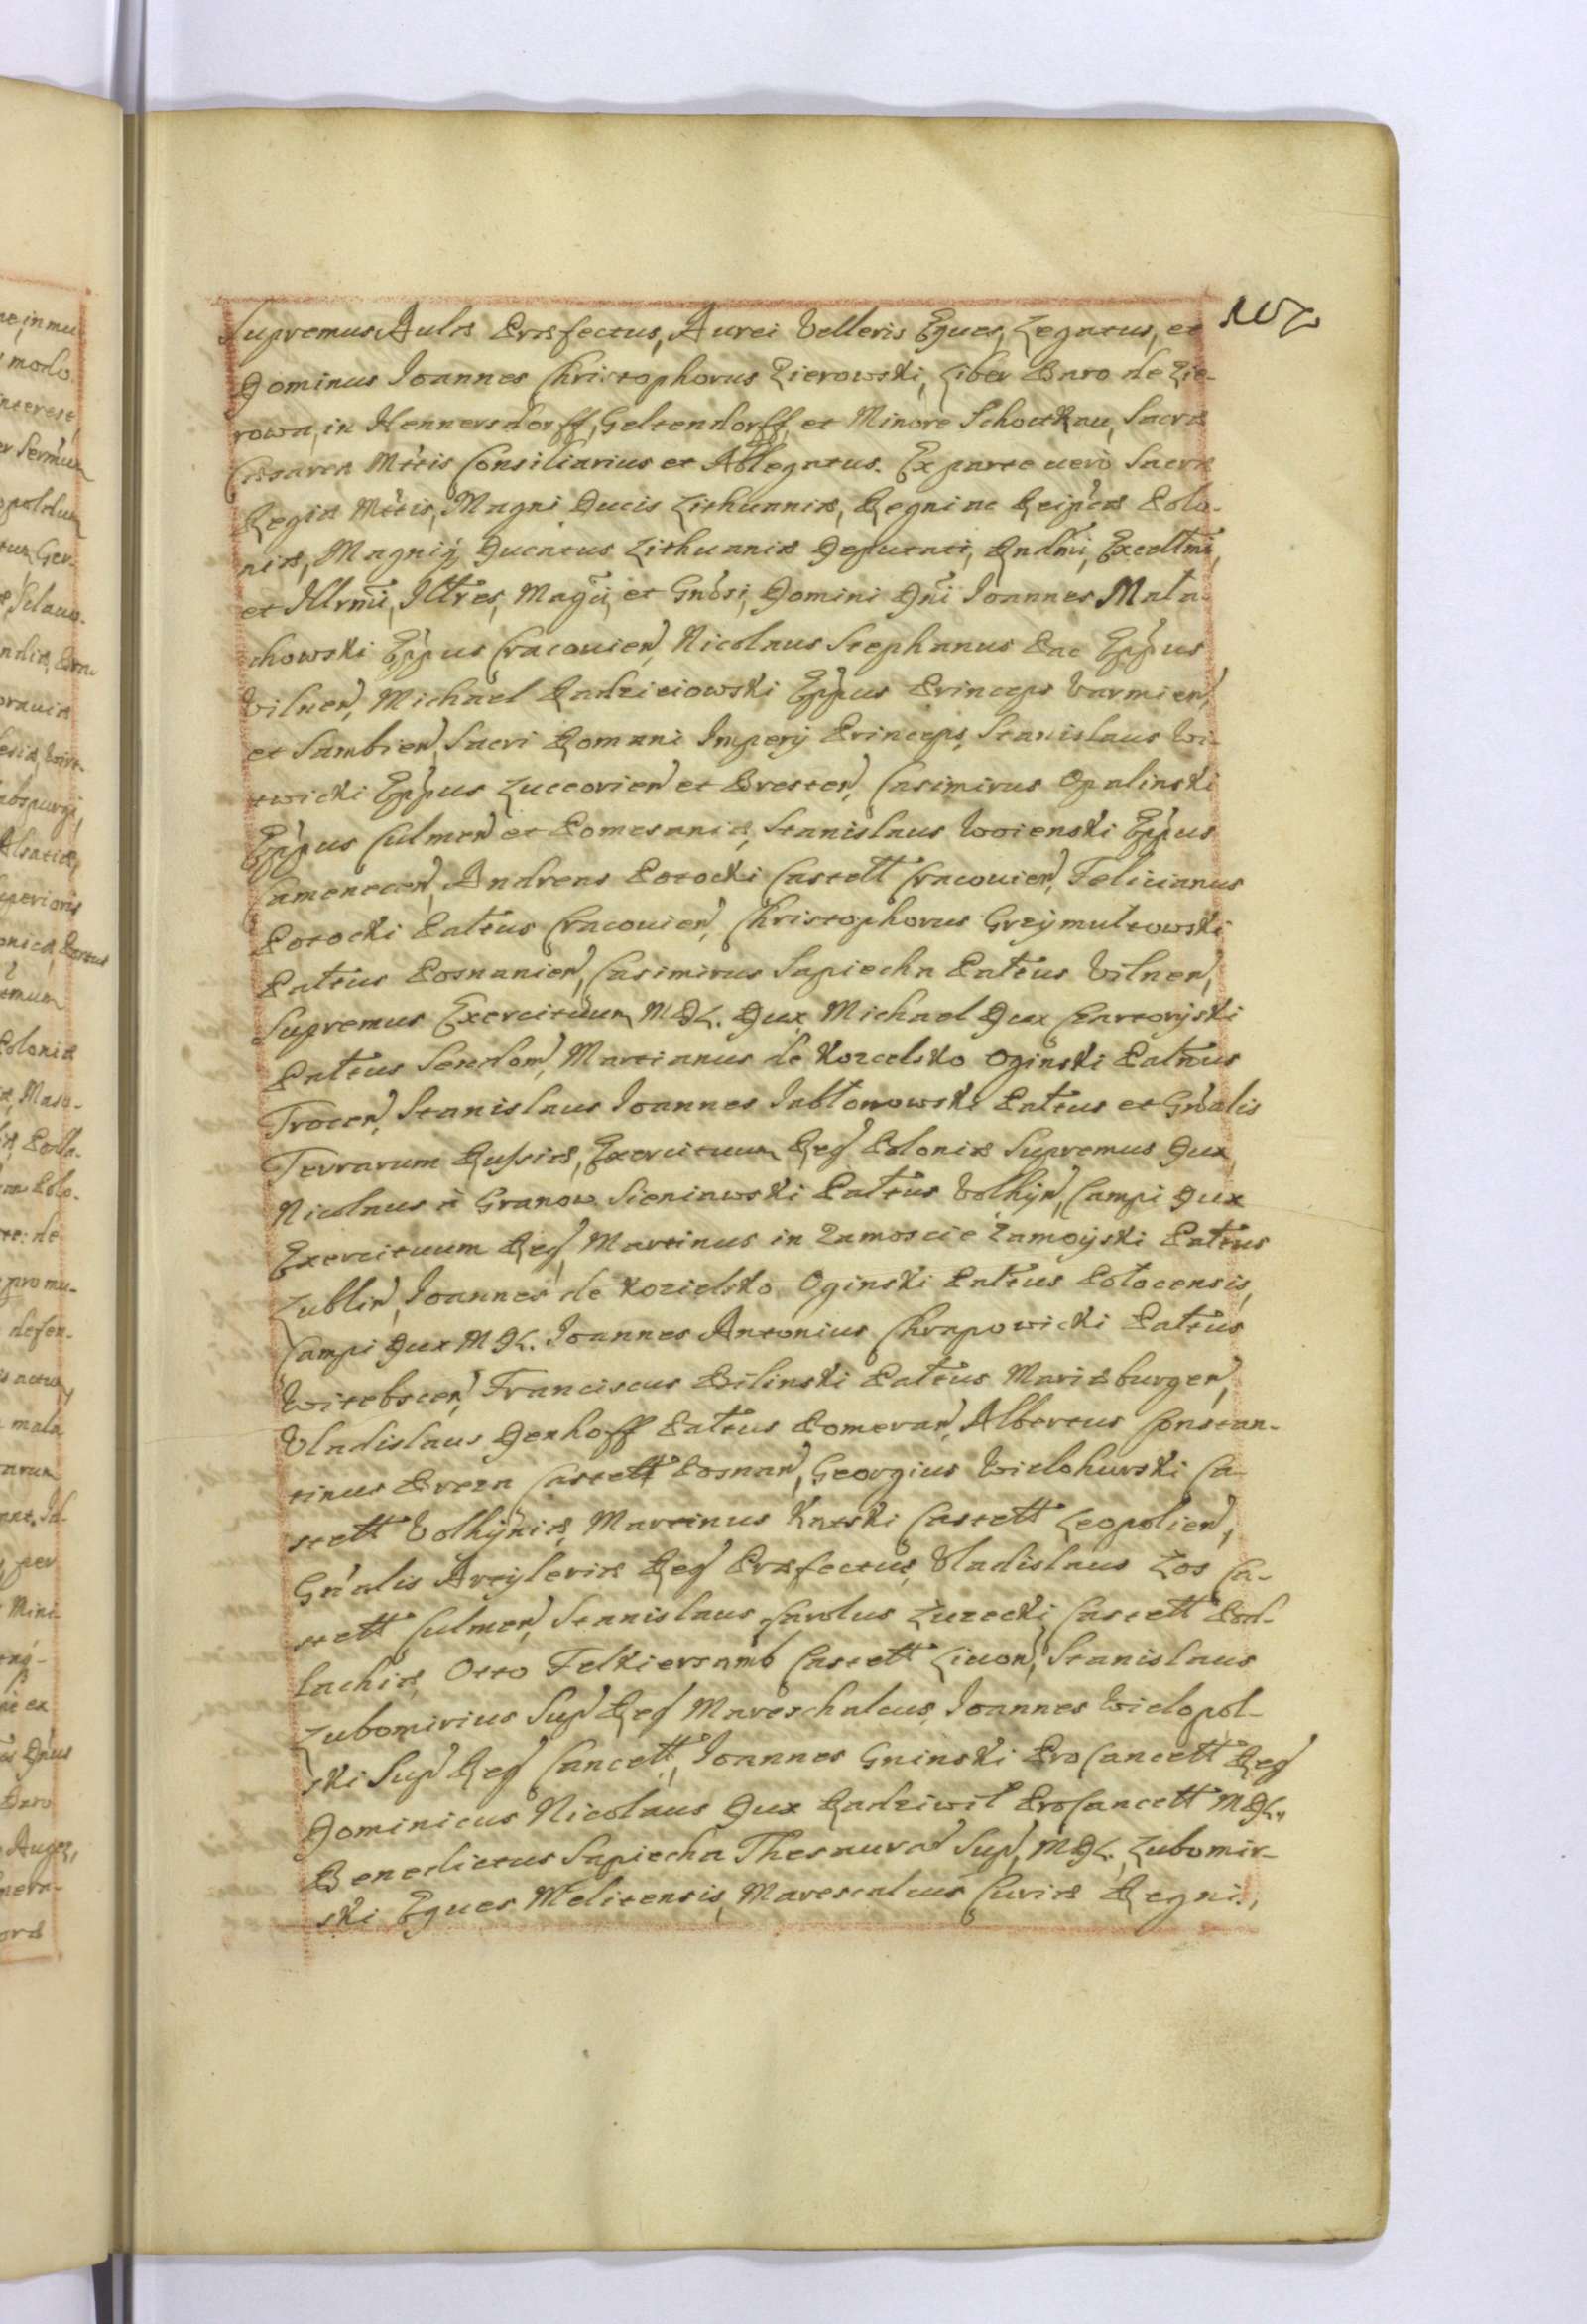 107
Supremus Aulæ Præfectus, Aurei Velleris Eques, Legatus, et
Dominus Ioannes Christophorus Zierowski, Liber Baro de Zie-
rowa, in Hennersdorff, Geltendorff, et Minore Schottkau, Sacræ
Cæsareæ Mttis Consiliarius et Ablegatus. Ex parte uerò Sacræ
Regiæ Mttis, Magni Ducis Lithuaniæ, Regni ac Reipcæ Polo-
niæ, Magniq̃ Ducatus Lithuaniæ Deputati, Rndmi, Excellmi,
et Illrmi, Illres, Magci, et Gnosi, Domini Dni Ioannes Mala-
chowski Eppus Cracouien, Nicolaus Stephanus Pac Eppus
Vilnen, Michael Radzieiowski Eppus Princeps Varmien,
et Sambien, Sacri Romani Imperij Princeps, Stanislaus Wi-
twicki Eppus Luceorien et Bresten, Casimirus Opalinski
Eppus Culmen et Pomesaniæ, Stanislaus Woienski Eppus
Camenecen, Andreas Potocki Castell Cracouien, Felicianus
Potocki Paltus Cracouien, Christophorus Grzymultowski
Paltus Posnanien, Casimirus Sapiecha Paltus Vilnen,
Supremus Exercituum MDL. Dux, Michael Dux Czartoryski
Paltus Sendom, Martianus de Kozcelsko Oginski Paltnus
Trocen, Stanislaus Ioannes Iablonowski Paltus et Gnalis
Terrarum Russiæ, Exercituum Reg Poloniæ Supremus Dux,
Nicolaus à Granow Sieniawski Paltus Volhyn, Campi Dux
Exercituum Reg, Martinus in Zamoscie Zamoyski Paltus
Lublin, Ioannes de Kozielsko Oginski Paltus Polocensis,
Campi Dux MDL. Ioannes Antonius Chrapowicki Paltus
Witebscen, Franciscus Bilinski Paltus Mariæburgen,
Vladislaus Denhoff Paltus Pomeran, Albertus Constan-
tinus Breza Castell Posnan, Georgius Wielohurski Ca-
stell Volhyniæ, Martinus Kątski Castell Leopolien,
Gnalis Artyleriæ Reg Præfectus, Vladislaus Los Ca-
stell Culmen, Stanislaus Carolus Luzecki Castell Pod-
lachiæ, Otto Felkiersamb Castell Liuon, Stanislaus
Lubomirius Sup Reg Mareschalcus, Ioannes Wielopol-
ski Sup Reg Cancell, Ioannes Gninski ProCancell Reg
Dominicus Nicolaus Dux Radziwil ProCancell MDL,
Benedictus Sapiecha Thesaura Sup, MDL. Lubomir-
ski Eques Melitensis, Marescalcus Curiæ Regni,